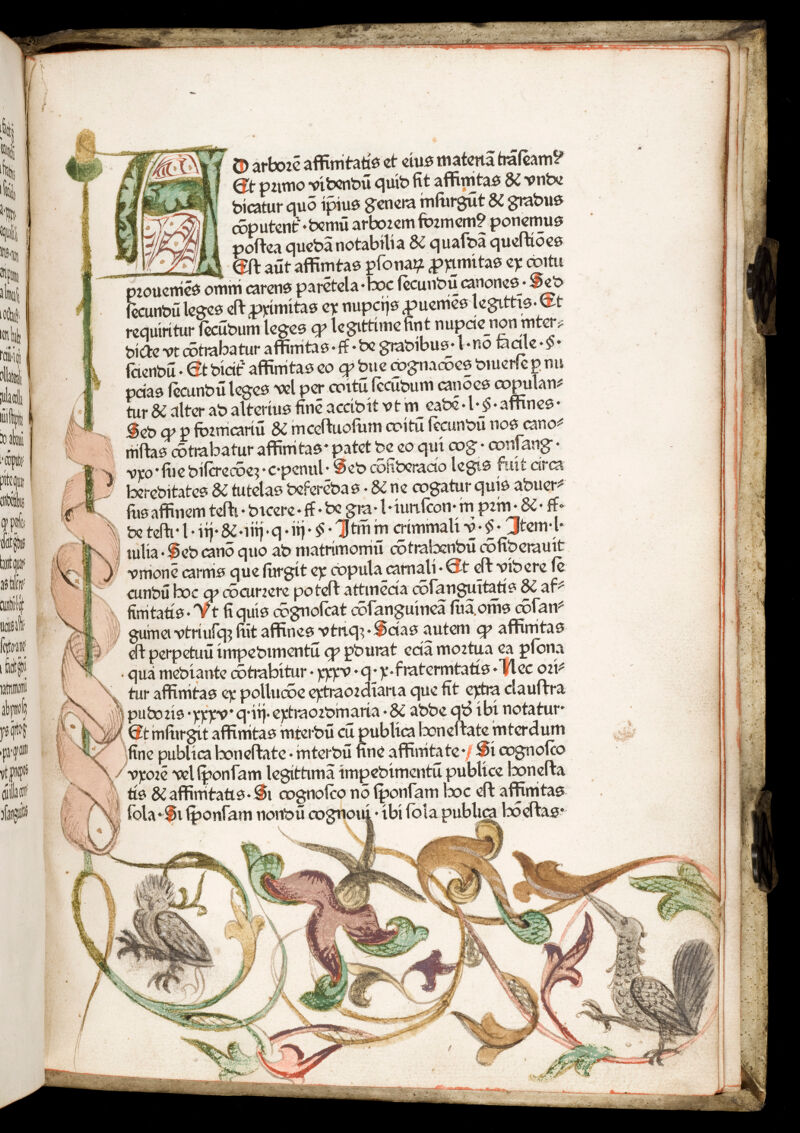 AD arborē affinitatis et eius materiā trāseam⁹
Et primo videndū quid sit affinitas & vnde
dicatur quō ip̄ius genera insurgūt & gradus
cōputent᷑ · demū arborem formem⁹ ponemus
postea quedā notabilia & quasdā questiōes
Est aūt affinitas ꝑsonaꝝ ꝓximitas ex coitu
proueniēs omni carens parētela · hoc secundū canones · Sed
secundū leges est ꝓximitas ex nupcijs ꝓueniēs legittīs · Et
requiritur secūdum leges ꝙ legittime sint nupcie non inter⸗
dicte vt cōtrahatur affinitas · ff · de gradibus · l · nō facile · §·
sciendū · Et dicit᷑ affinitas eo ꝙ due cognacōes diuerse ꝑ nu
pcias secundū leges vel per coitū secūdum canōes copulan⸗
tur & alter ad alterius finē accidit vt in eadē · l · § · affines ·
Sed ꝙ ꝑ fornicariū & incestuosum coitū secundū nos cano⸗
nistas cōtrahatur affinitas · patet de eo qui cog · consang ·
vxo · siue discrecōeꝫ · c · penul · Sed cōsideracio legis fuit circa
hereditates & tutelas deferēdas · & ne cogatur quis aduer⸗
sus affinem testi · dicere · ff · de gra · l · iuriscon · in prin · & · ff ·
de testi · l · iij · & · iiij · q · iij · § · Itm̄ in criminali v · § · Item · l ·
iulia · Sed canō quo ad matrimoniū cōtrahendū cōsiderauit
vnionē carnis que surgit ex copula carnali · Et est videre se
cundū hoc ꝙ cōcurrere potest attinēcia cōsanguītatis & af⸗
finitatis · Vt si quis cōgnoscat cōsanguineā suā om̄s cōsan⸗
guinei vtriusqꝫ sūt affines vtriqꝫ · Scias autem ꝙ affinitas
est perpetuū impedimentū ꝙ ꝑdurat eciā mortua ea ꝑsona
qua mediante cōtrahitur · xxxv · q · x · fraternitatis · Nec ori⸗
tur affinitas ex pollucōe extraordīaria que fit extra claustra
pudoris · xxxv · q · iij · extraordinaria · & adde qd̄ ibi notatur ·
Et insurgit affinitas interdū cū publica honestate interdum
sine publica honestate · interdū sine affinitate · Si cognosco
vxorē vel sponsam legittimā impedimentū publice honesta
tis & affinitatis · Si cognosco nō sponsam hoc est affinitas
sola · Si sponsam nondū cognoui · ibi sola publica hōestas ·